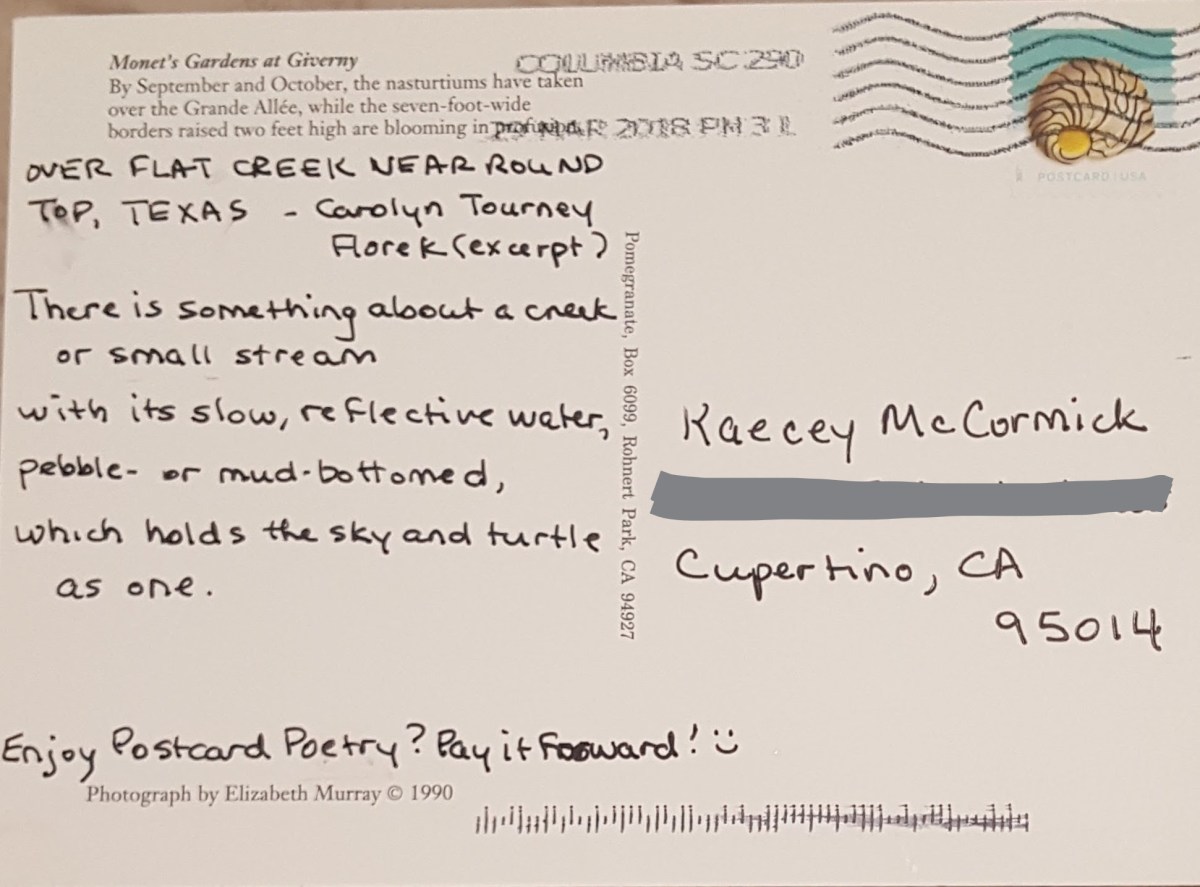 Monet's Gardens at Giverny
By September and October, the nasturtiums have taken
over the Grande Allée, while the seven-foot-wide
borders raised two feet high are blooming in
COLUMBIA SC 290
MAR 2018 PM 3 L
POSTCARD | USA
OVER FLAT CREEK NEAR ROUND
TOP, TEXAS - Carolyn Tourney
Florek (excerpt)
There is something about a creek
or small stream
with its slow, reflective water,
pebble- or mud-bottomed,
which holds the sky and turtle
as one.
Pomegranate, Box 6099, Rohnert Park, CA 94927
Kaecey McCormick
Cupertino, CA
95014
Enjoy Postcard Poetry? Pay it Forward! :)
Photograph by Elizabeth Murray © 1990